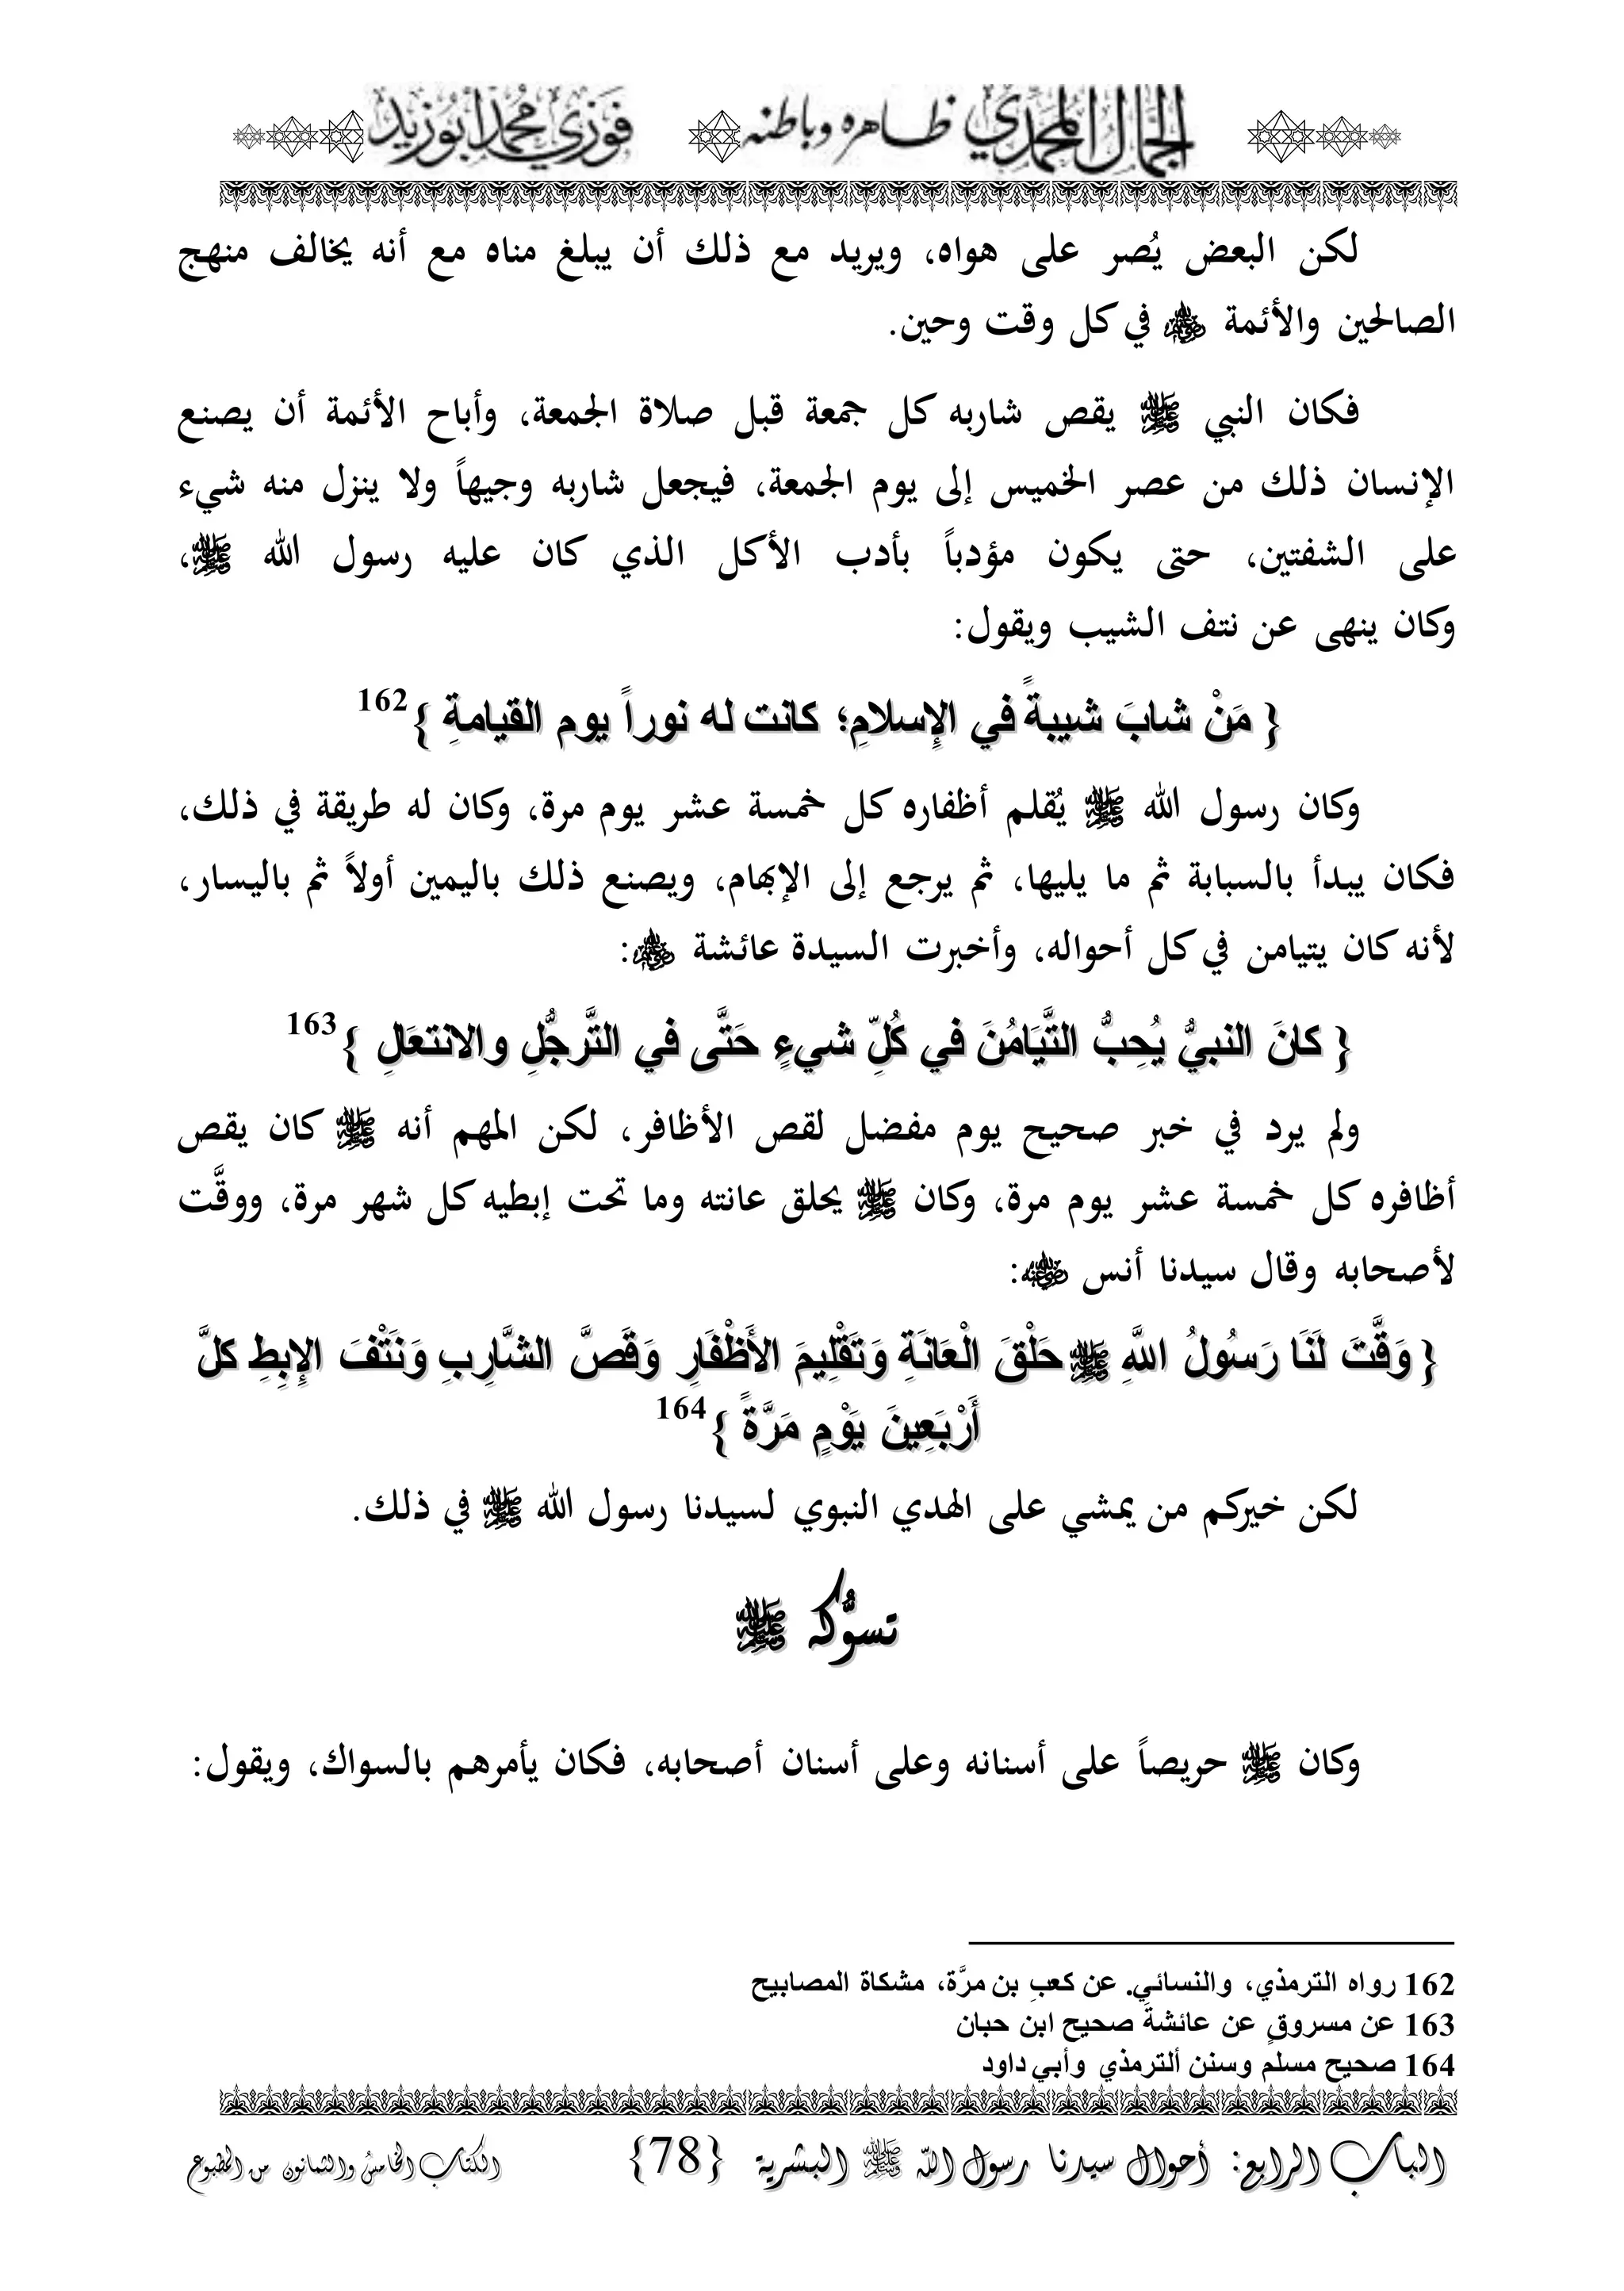 الجمال المحمدي ظاهره وباطنه فوزي محمد أبوزيد
لكن البعض يُصر على هواه، ويريد مع ذلك أن يبلغ مناه مع أنه يخالف منهج
الصالحين والأئمة ﷺ في كل وقت وحين.
فكان النبي ﷺ يقص شاربه كل جمعة قبل صلاة الجمعة، وأباح الأئمة أن يصنع
الإنسان ذلك من عصر الخميس إلى يوم الجمعة، فيجعل شاربه وجيهاً ولا ينزل منه شيء
على الشفتين، حتى يكون مؤدباً بأدب الأكل الذي كان عليه رسول الله ﷺ،
وكان ينهى عن نتف الشيب ويقول:
{ مَنْ شابَ شيبةً في الإِسلامِ؛ كانت له نوراً يوم القيامةِ }162
وكان رسول الله ﷺ يُقلم أظفاره كل خمسة عشر يوم مرة، وكان له طريقة في ذلك،
فكان يبدأ بالسبابة ثم ما يليها، ثم يرجع إلى الإبهام، ويصنع ذلك باليمين أولاً ثم باليسار،
لأنه كان يتيامن في كل أحواله، وأخبرت السيدة عائشة رضي الله عنها:
{ كانَ النبيُّ يُحِبُّ التَّيَامُنَ في كُلِّ شيءٍ حَتَّى في التَّرجُّلِ والانتعَالِ }163
ولم يرد في خبر صحيح يوم مفضل لقص الأظافر، لكن المهم أنه ﷺ كان يقص
أظافره كل خمسة عشر يوم مرة، وكان ﷺ يحلق عانته وما تحت إبطيه كل شهر مرة، ووقَّت
لأصحابه وقال سيدنا أنس رضي الله عنه:
{ وَقَّتَ لَنَا رَسُولُ اللَّهِ ﷺ حَلْقَ الْعَانَةِ وَتَقْلِيمَ الأَظْفَارِ وَقَصَّ الشَّارِبِ وَنَتْفَ الإِبِطِ كلَّ
أَرْبَعِينَ يَوْمٍ مَرَّةً }164
لكن خيركم من يمشي على الهدي النبوي لسيدنا رسول الله ﷺ في ذلك.
تسوُّكه ﷺ
وكان ﷺ حريصاً على أسنانه وعلى أسنان أصحابه، فكان يأمرهم بالسواك، ويقول:
162 رواه الترمذي، والنسائي. عن كعبِ بن مرَّة، مشكاة المصابيح
163 عن مسروقٍ عن عائشةَ صحيح ابن حبان
164 صحيح مسلم وسنن ألترمذي وأبي داود
الباب الرابع: أحوال سيدنا رسول الله ﷺ البشرية {78} الكتاب الخامسُ والثمانون من المطبوع